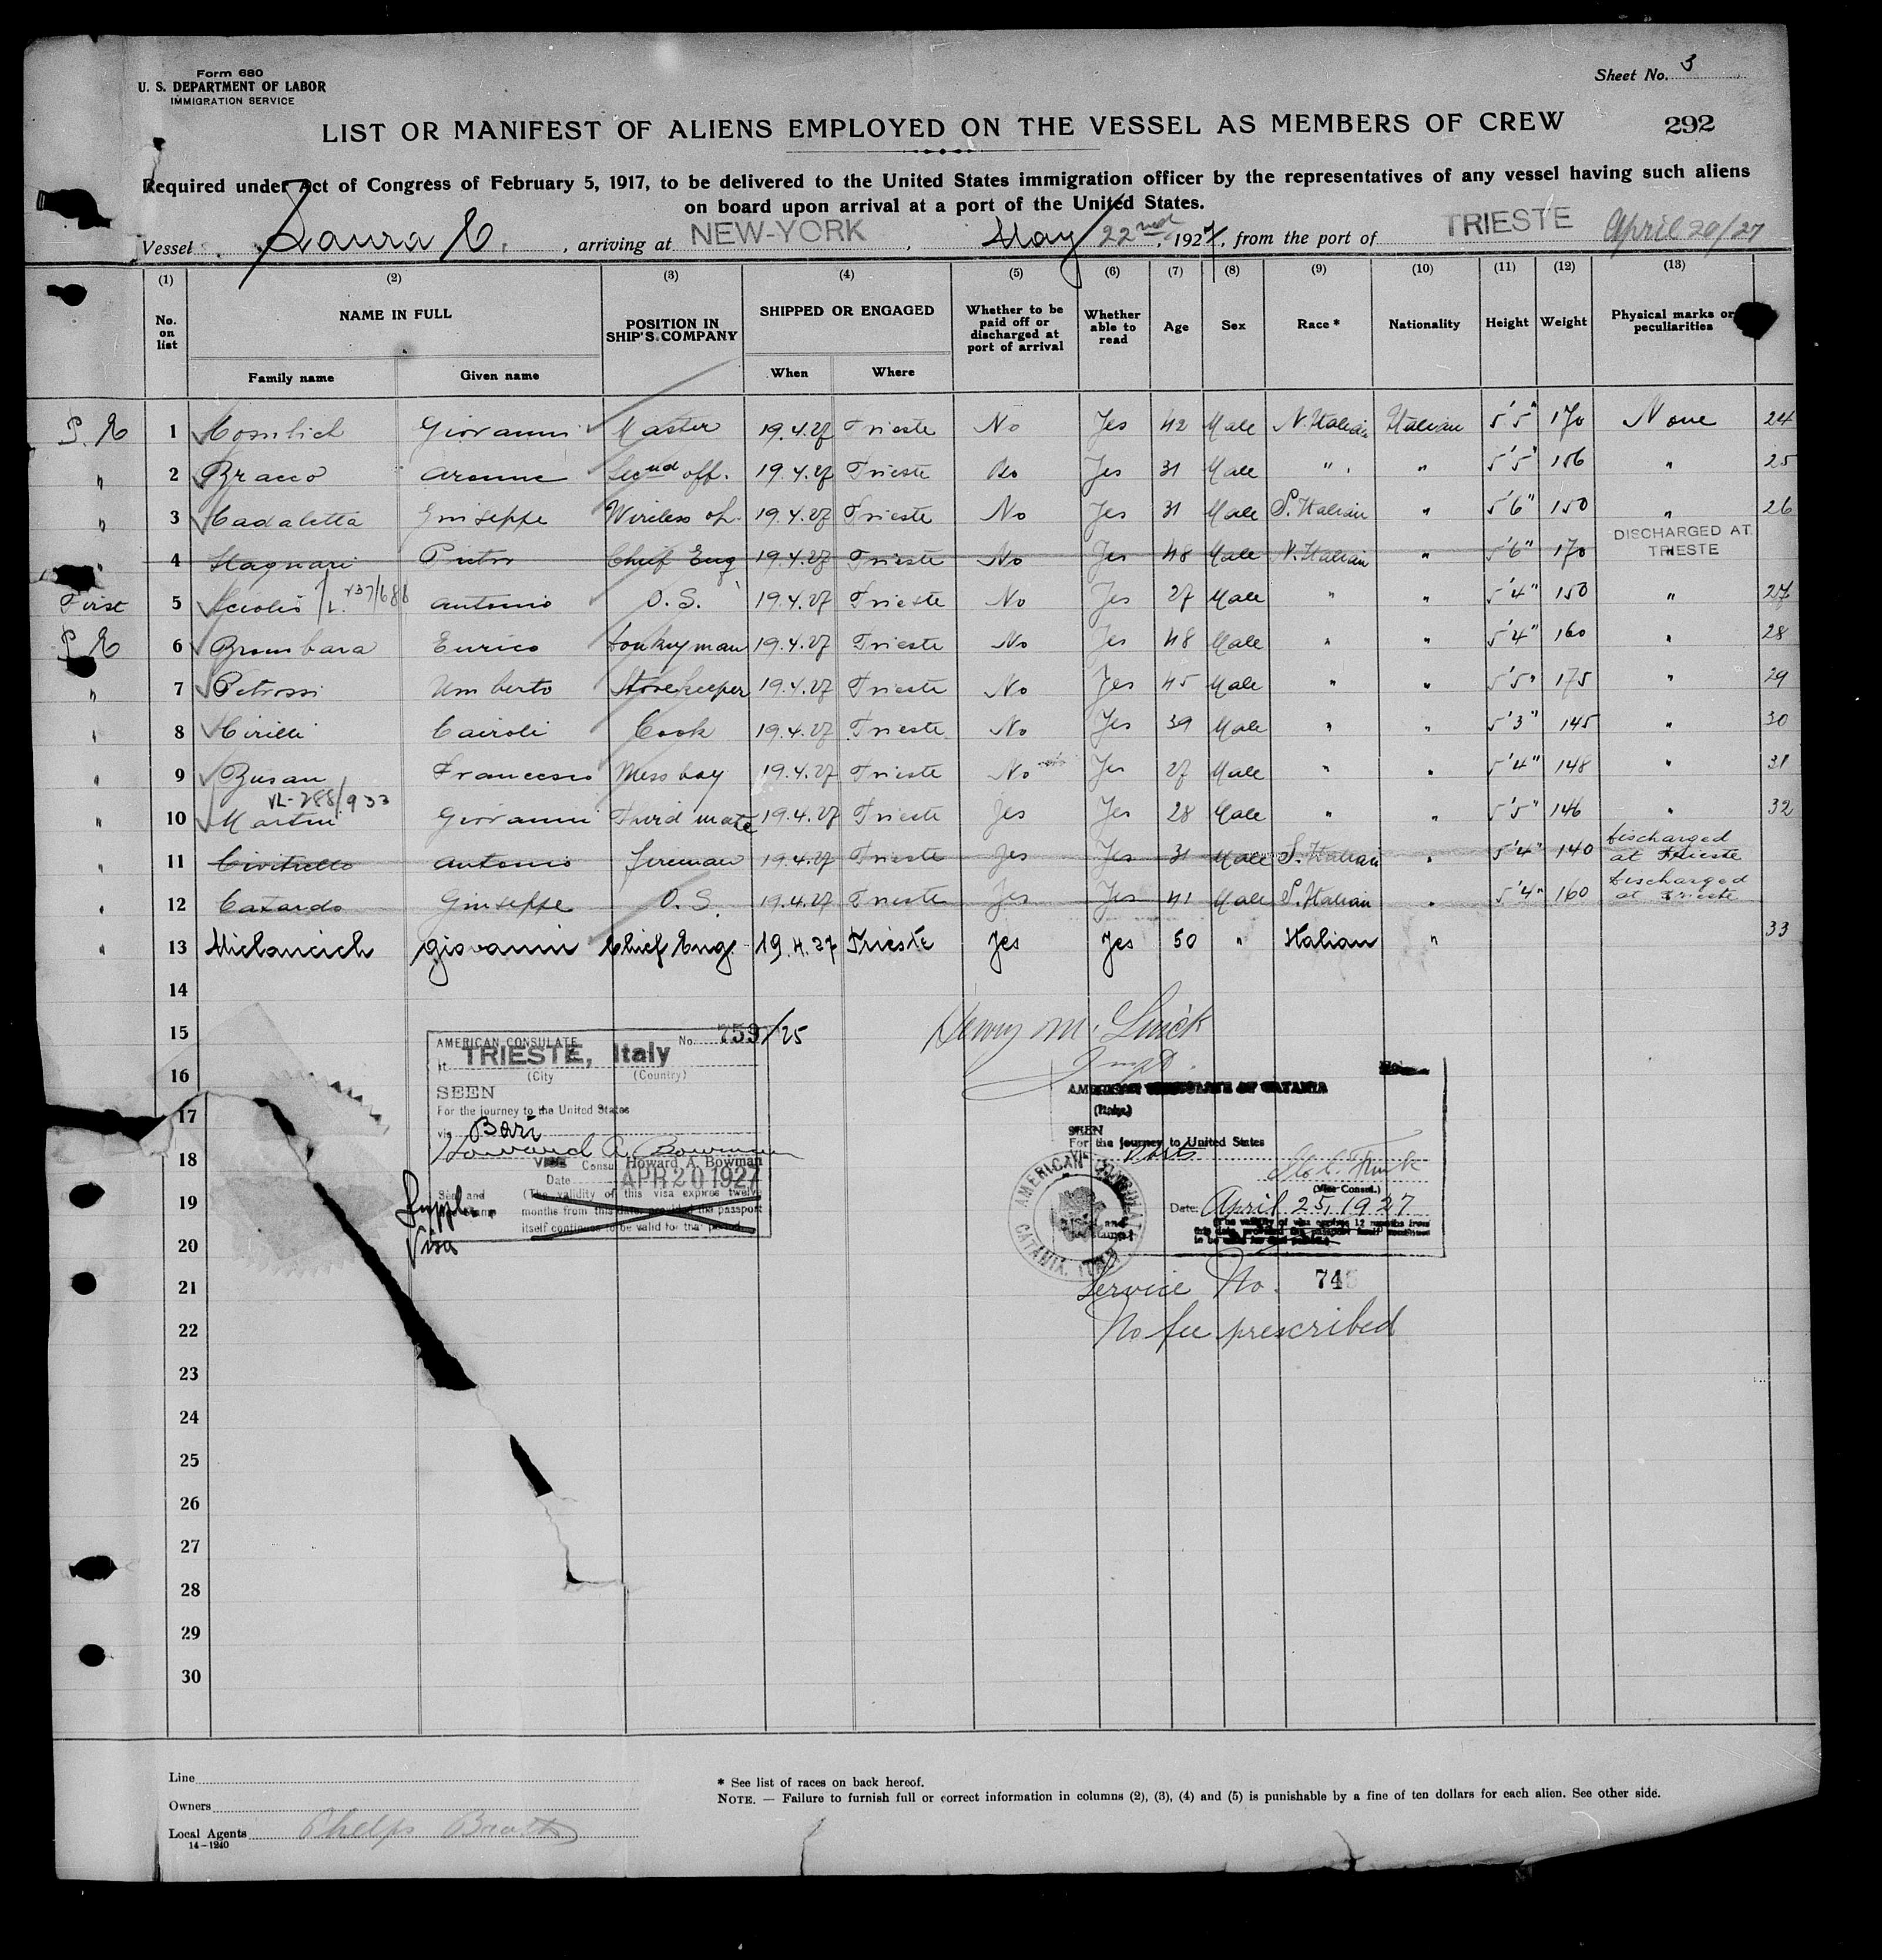 Form 680
U. S. DEPARTMENT OF LABOR
IMMIGRATION SERVICE
Sheet No. 3
LIST OR MANIFEST OF ALIENS EMPLOYED ON THE VESSEL AS MEMBERS OF CREW
292
Required under Act of Congress of February 5, 1917, to be delivered to the United States immigration officer by the representatives of any vessel having such aliens
on board upon arrival at a port of the United States.
Vessel Laura C., arriving at NEW-YORK, May 22nd, 1927, from the port of TRIESTE April 20/27
(1) (2) (3) (4) (5) (6) (7) (8) (9) (10) (11) (12) (13)
No. on list NAME IN FULL POSITION IN SHIP'S COMPANY SHIPPED OR ENGAGED Whether to be paid off or discharged at port of arrival Whether able to read Age Sex Race * Nationality Height Weight Physical marks or peculiarities
Family name Given name When Where
1 Cosulich Giovanni Master 19.4.27 Trieste No Yes 42 Male N. Italian Italian 5'5" 170 None 24
" 2 Bracco Aronne Second off. 19.4.27 Trieste No Yes 31 Male " " 5'5" 156 " 25
" 3 Cadaletta Giuseppe Wireless op. 19.4.27 Trieste No Yes 31 Male S. Italian " 5'6" 150 " 26
DISCHARGED AT
" 4 Stagnari Pietro Chief Eng 19.4.27 Trieste No Yes 48 Male N. Italian " 5'6" 170 " TRIESTE
First 5 Antonio O. S. 19.4.27 Trieste No Yes 27 Male " " 5'4" 150 " 27
6 Brombara Enrico Donkeyman 19.4.27 Trieste No Yes 48 Male " " 5'4" 160 " 28
" 7 Petrossi Umberto Storekeeper 19.4.27 Trieste No Yes 45 Male " " 5'5" 175 " 29
" 8 Cirilli Cairoli Cook 19.4.27 Trieste No Yes 39 Male " " 5'3" 145 " 30
" 9 Busan Francesco Mess boy 19.4.27 Trieste No Yes 27 Male " " 5'4" 148 " 31
VL-288/933
" 10 Martin Giovanni Third mate 19.4.27 Trieste Yes Yes 28 Male " " 5'5" 146 " 32
" 11 Civitrello Antonio Fireman 19.4.27 Trieste Yes Yes 31 Male S. Italian " 5'4" 140 Discharged at Trieste
" 12 Catardo Giuseppe O. S. 19.4.27 Trieste Yes Yes 41 Male S. Italian " 5'4" 160 Discharged at Trieste
" 13 Miclaucich Giovanni Chief Eng. 19.4.27 Trieste Yes Yes 50 " Italian " 33
14
15
16
17
18
19
20
21
22
23
24
25
26
27
28
29
30
AMERICAN CONSULATE No. 759/25
at TRIESTE, Italy
(City (Country)
SEEN
For the journey to the United States
via Bari
Howard A. Bowman
VICE Consul Howard A. Bowman
Date APR 20 1927
Seal and (The validity of this visa expires twelve
months from this date, provided the passport
itself continues to be valid for that period.
Suppl.
Visa
Henry M.
AMERICAN CONSULATE OF CATANIA
(Italy)
SEEN
For the journey to United States
(Vice Consul.)
Date: April 25, 1927
AMERICAN CONSULATE
CATANIA, ITALY
Service No. 745
No fee prescribed
Line
Owners
Local Agents Phelps Bros
14-1240
* See list of races on back hereof.
NOTE. — Failure to furnish full or correct information in columns (2), (3), (4) and (5) is punishable by a fine of ten dollars for each alien. See other side.